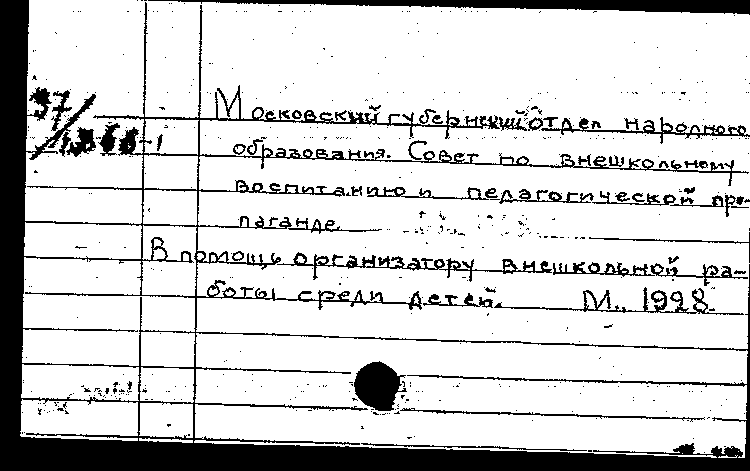 Московский губернский отдел народного
образования. Совет по внешкольному
воспитанию и педагогической про-
паганде
В помощь организатору внешкольной ра-
боты среди детей. М., 1928.